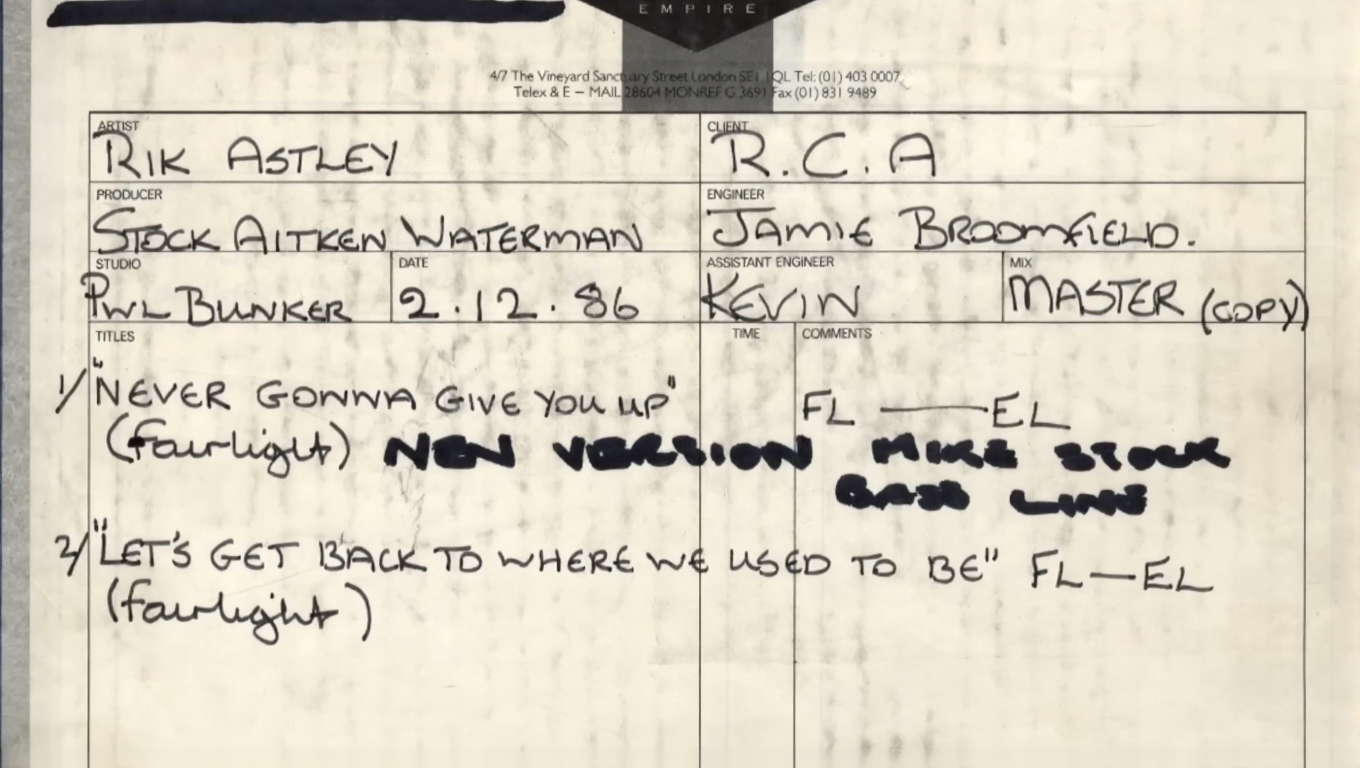 EMPIRE
4/7 The Vineyard Sanctuary Street London SE1 1QL Tel: (01) 403 0007
Telex & E – MAIL 28604 MONREF G 3691 Fax (01) 831 9489
ARTIST
RIK ASTLEY
CLIENT
R.C.A
PRODUCER
STOCK AITKEN WATERMAN
ENGINEER
JAMIE BROOMFIELD.
STUDIO
PWL BUNKER
DATE
2.12.86
ASSISTANT ENGINEER
KEVIN
MIX
MASTER (COPY)
TITLES
TIME
COMMENTS
1/ "NEVER GONNA GIVE YOU UP" FL — EL
(Fairlight) NEW VERSION MIKE STOCK
BASS LINE
2/ "LET'S GET BACK TO WHERE WE USED TO BE" FL — EL
(Fairlight)